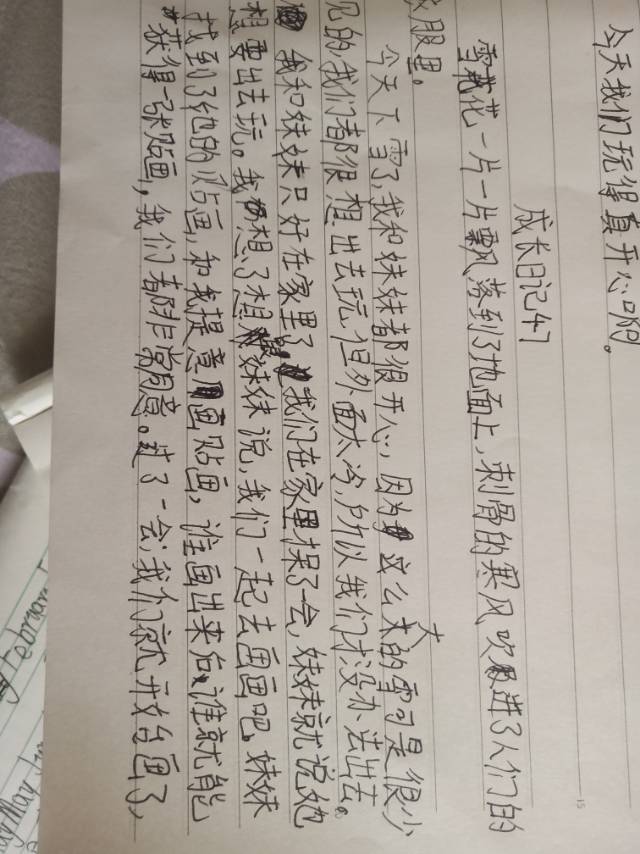 今天我们玩得真开心啊。
成长日记47
雪花一片一片飘落到了地面上，刺骨的寒风吹进了人们的
衣服里。
今天下雪了，我和妹妹都很开心，因为这么大的雪可是很少
见的，我们都很想出去玩，但外面太冷，所以我们才没办法出去。
我和妹妹只好在家里了，我们在家里呆了一会，妹妹就说她
想要出去玩。我想了想跟妹妹说，我们一起去画画吧。妹妹
找到了他的贴画，和我提意画贴画，谁画出来后，谁就能
获得一张贴画，我们都非常愿意。过了一会，我们就开始画了，
February
May